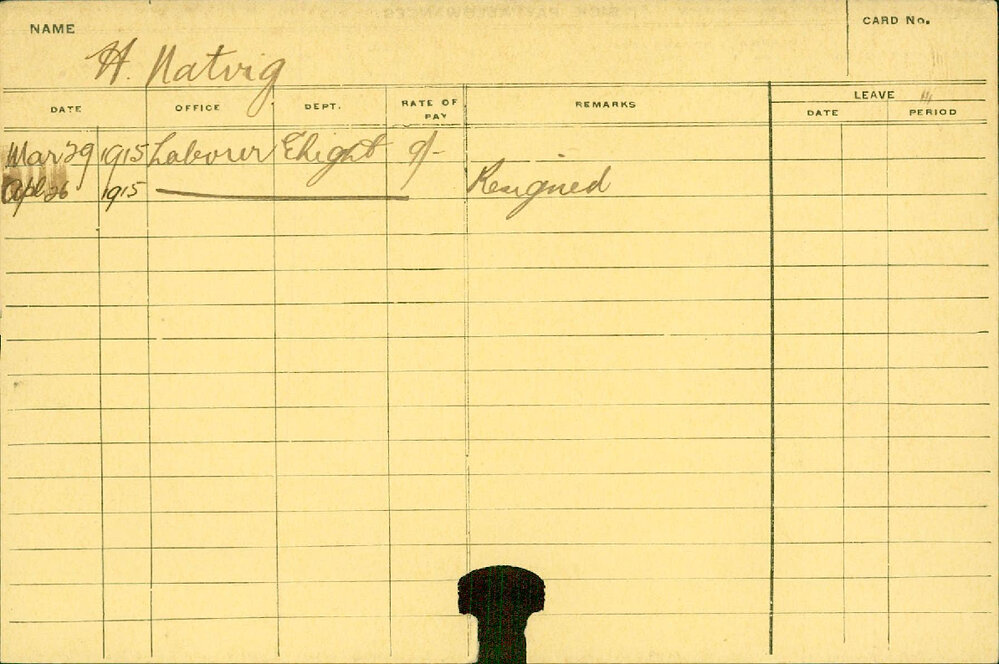 NAME
CARD No.
H. Natvig
DATE OFFICE DEPT. RATE OF PAY REMARKS LEAVE
DATE PERIOD
Mar 29 1915 Labourer E Light 9/-
Apl 26 1915 Resigned